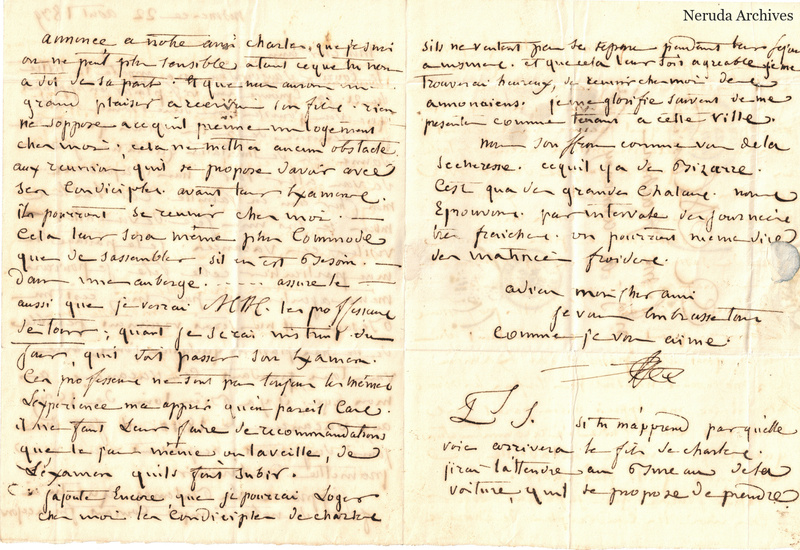 Neruda Archives
annonce a notre ami charles, que je suis
on ne peut plus sensible a tout ce que tu nous
a dit de sa part. Et que nous aurons un
grand plaisir a recevoir son fils. rien
ne s'oppose a ce qu'il prenne un logement
chez moi; cela ne mettra aucun obstacle
aux reunions, qu'il se propose d'avoir avec
ses Condiciples. avant leur Examen.
ils pourront se reunir chez moi.
Cela leur sera même plus Commode
que de s'assembler s'il en est Besoin.
Dans une auberge. assure le
aussi que je verrai MM. les professeurs
de tours; quant je serai instruit du
jour, qu'il doit passer son Examen.
Ces professeurs ne sont pas toujours les mêmes
L'experience m'a appris qu'en pareil Cas.
il ne faut Leur faire de recommandations
que le jour même ou la veille, de
L'Examen qu'ils font subir.
j'ajoute Encore, que je pourrai Loger
chez moi les Condiciples de charles
s'ils ne veulent pas se separer pendant leur sejour
et que cela leur sois agreable je me
trouverai heureux, de reunir chez moi de
annonaiens. je me glorifie souvent de me
presenter comme tenant a cette ville.
nous souffrons comme vous de la
secheresse. ce qu'il y a de Bizarre.
C'est qu'a de grandes Chaleurs. nous
Eprouvons. par intervale des journées
très fraiches. on pourrait même dire
des matinées froides.
adieu mon cher ami
je vous Embrasse tous
comme je vous aime.
P.S. si tu m'apprend par quelle
voie arrivera le fils de charles.
j'irai l'attendre au Bureau de la
voiture, qu'il se propose de prendre